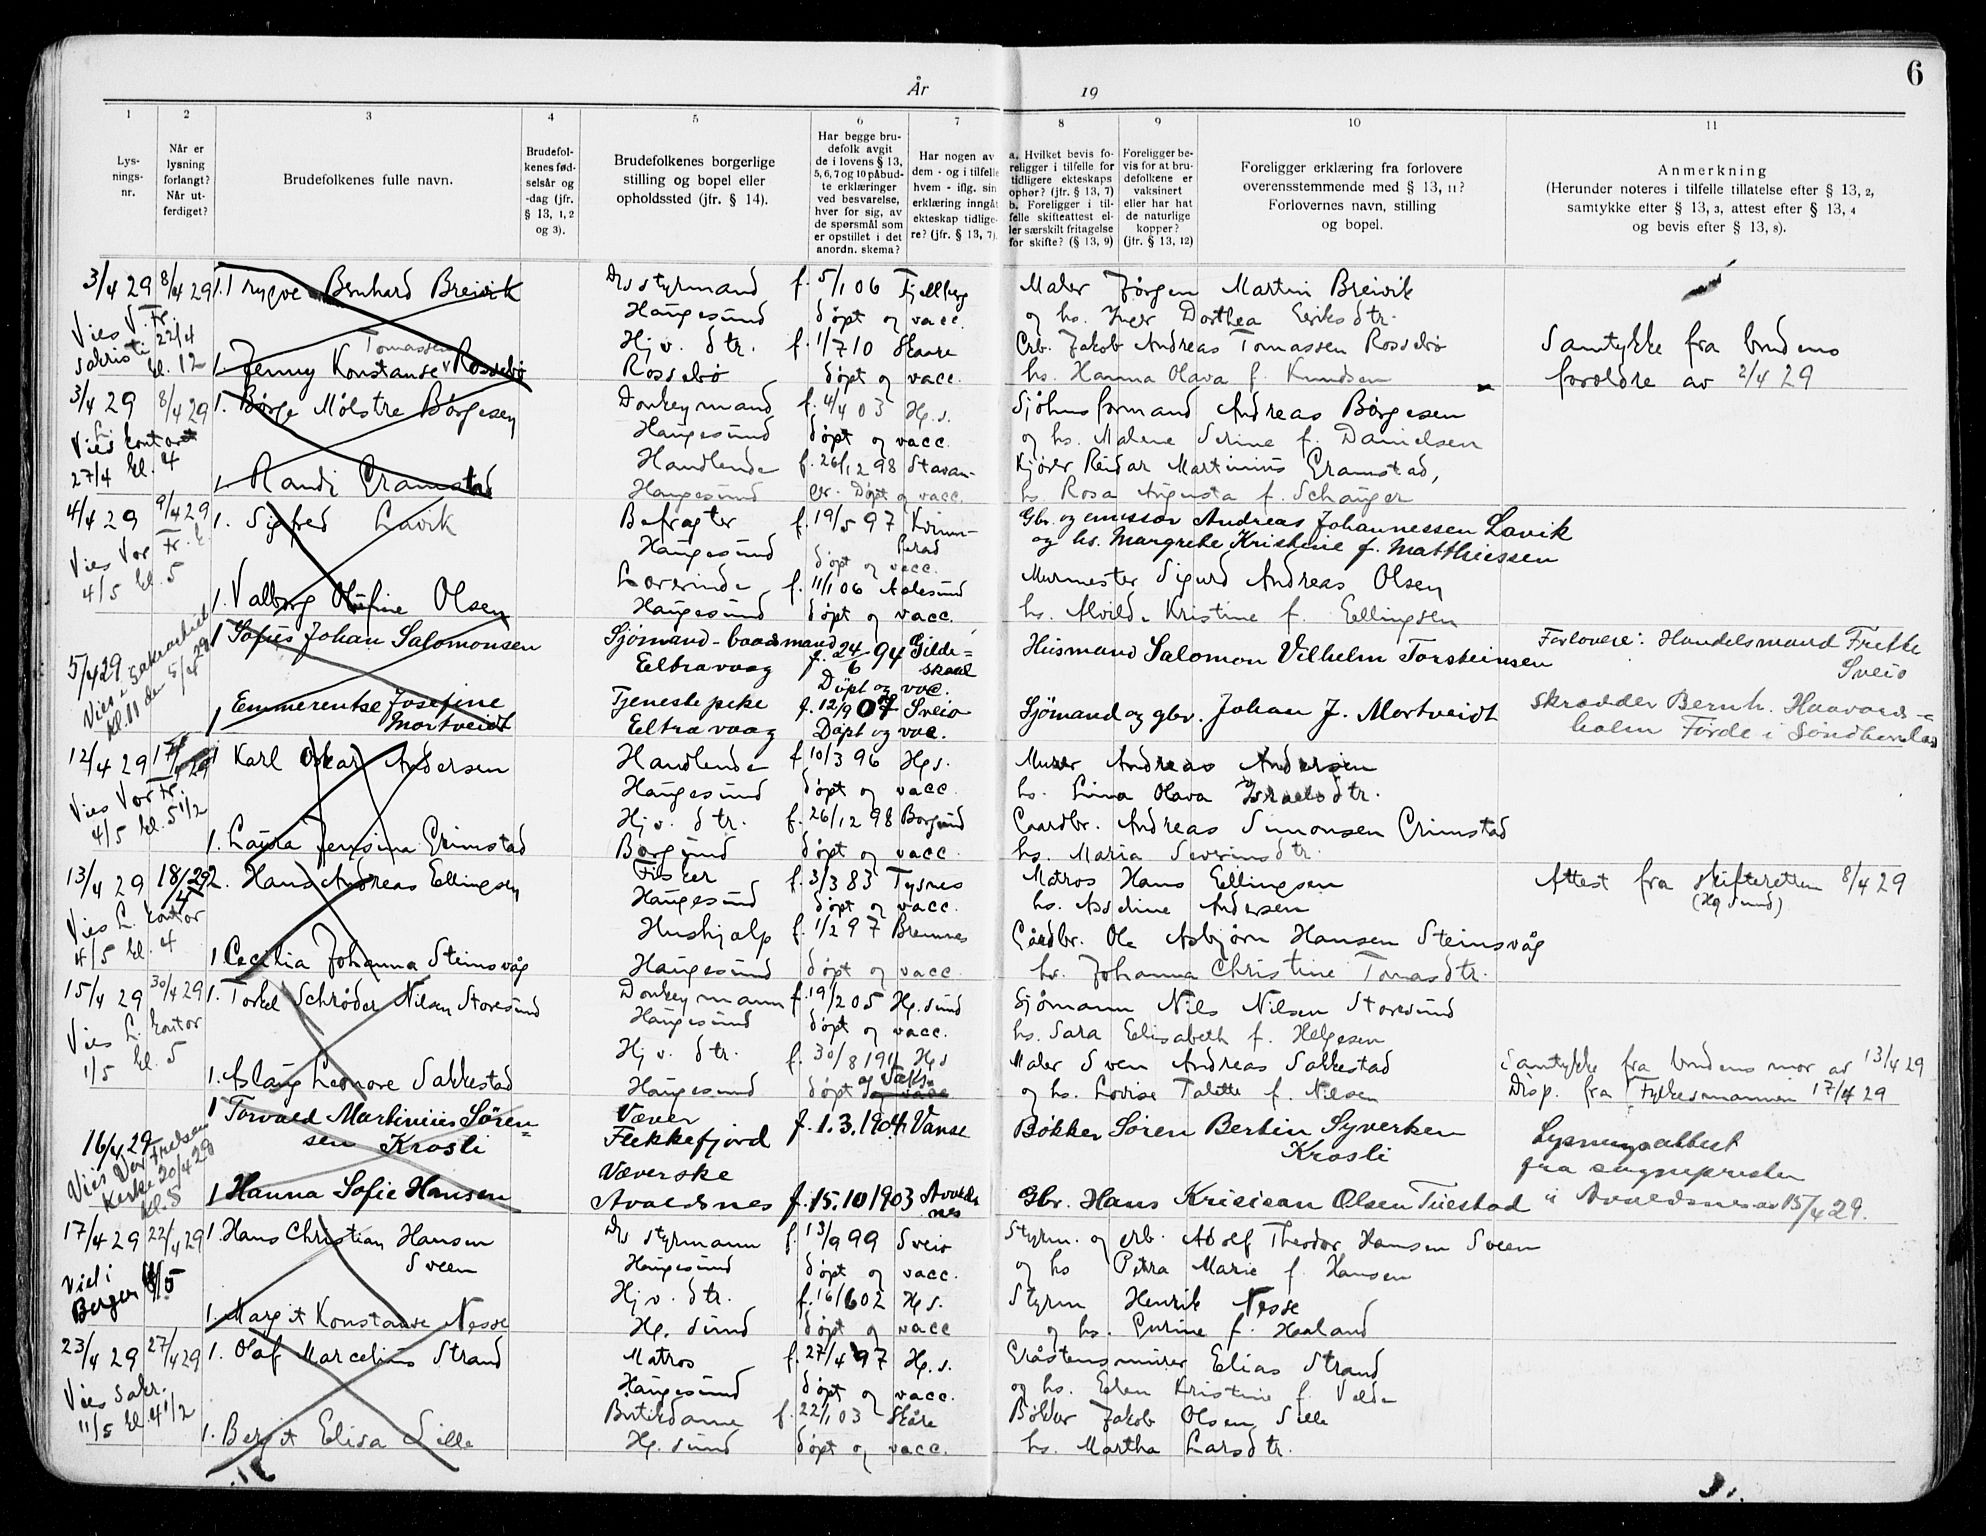 6
År 19
1 2 3 4 5 6 7 8 9 10 11
Lys-
nings-
nr.
Når er
lysning
forlangt?
Når ut-
ferdiget?
Brudefolkenes fulle navn.
Brudefol-
kenes fød-
selsår og
-dag (jfr.
§ 13, 1, 2
og 3).
Brudefolkenes borgerlige
stilling og bopel eller
opholdssted (jfr. § 14).
Har begge bru-
defolk avgit
de i lovens § 13,
5, 6, 7 og 10 påbud-
te erklæringer
ved besvarelse,
hver for sig, av
de spørsmål som
er opstillet i det
anordn. skema?
Har nogen av
dem - og i tilfelle
hvem - iflg. sin
erklæring inngåt
ekteskap tidlige-
re? (jfr. § 13, 7).
a. Hvilket bevis fo-
religger i tilfelle for
tidligere ekteskaps
ophør? (jfr. § 13, 7)
b. Foreligger i til-
felle skifteattest el-
ler særskilt fritagelse
for skifte? (§ 13, 9)
Foreligger be-
vis for at bru-
defolkene er
vaksinert
eller har hat
de naturlige
kopper?
(jfr. § 13, 12)
Foreligger erklæring fra forlovere
overensstemmende med § 13, 11?
Forlovernes navn, stilling
og bopel.
Anmerkning
(Herunder noteres i tilfelle tillatelse efter § 13, 2,
samtykke efter § 13, 3, attest efter § 13, 4
og bevis efter § 13, 8).
3/4 29 8/4 29 1. Trygve Bernhard Breivik styrmand f. 5/1 06 Fjellberg Maler Jørgen Martin Breivik
Vies V. Fr. Haugesund døpt og vacc. og hs. Inger Dorthea Eriksdtr.
sakristi 22/4 kl. 12
Tomassen
1. Jenny Konstanse Rossebø Hj v. dtr. f. 1/7 10 Skaare Erb. Jakob Andreas Tomassen Rossebø Samtykke fra brudens
Rossebø døpt og vacc. hs. Hanna Olava f. Knudsen foreldre av 2/4 29
3/4 29 8/4 29 1. Børge Mølstre Børgesen Donkeymand f. 4/4 03 Hg. s. Sjøhusformand Andreas Børgesen
Vies L. kontor Haugesund døpt og vacc. og hs. Malene Serine f. Danielsen
27/4 kl. 4 1. Randi Gramstad Handlende f. 26/12 98 Stavan- Kjører Reidar Martinius Gramstad,
Haugesund ger. Døpt og vacc. hs. Rosa Augusta f. Schanger
4/4 29 9/4 29 1. Sigfred Lavik Befragter f. 19/5 97 Kvinn- Gbr. og emissær Andreas Johannessen Lavik
Vies Vor Fr. k. Haugesund herad døpt og vacc. og hs. Margrete Kristine f. Matthiessen
4/5 kl. 5 1. Valborg Olufine Olsen Lærerinde f. 11/1 06 Aalesund Murmester Sigurd Andreas Olsen
Haugesund døpt og vacc. hs. Alvilde Kristine f. Ellingsen
5/4 29 1 Sofus Johan Salomonsen Sjømand - baadsmand f. 24/6 94 Gilde- Husmand Salomon Vilhelm Torsteinsen Forlovere: Handelsmand Frette
Vies i Sakristiet Eeltravaag skaal Døpt og vac. Sveio
kl. 11 den 5/4 29 1 Emmerentse Josefine Mortveidt Tjenestepike f. 12/9 07 Sveio Sjømand og gbr. Johan J. Mortveidt skrædder Bernh. Haavards-
Eeltravaag Døpt og vac. holm Førde i Søndhordland
12/4 29 17/4 29 1 Karl Oskar Andersen Handlende f. 10/3 96 Hg s. Murer Andreas Andersen
Vies Vor Fr. Haugesund døpt og vacc. hs. Lina Olava Israelsdtr.
4/5 kl. 5 1/2 Hj v. dtr. f. 26/12 98 Borgund Gaardbr. Andreas Simonsen Grimstad
1. Laura Jensina Grimstad Borgund døpt og vacc hs. Maria Severinsdtr.
13/4 29 18/4 29 2. Hans Andreas Ellingsen Fisker f. 3/3 83 Tysnes Matros Hans Ellingsen Attest fra skifteretten 8/4 29
Vies L. kontor Haugesund døpt og vacc. hs. Asseline Andersen (Hg sund)
4/5 kl. 4 Hushjalp f. 1/2 97 Bremnes Gårdbr. Ole Asbjørn Hansen Steinsvåg
1 Cecilia Johanna Steinsvåg Haugesund døpt og vacc hs. Johanna Christine Tomasdtr.
15/4 29 30/4 29 1. Torkel Schrøder Nilsen Storesund Donkeymann f. 19/2 05 Hg. sund Sjømann Nils Nilsen Storesund
Vies L. kontor Haugesund døpt og vacc. hs. Sara Elisabeth f. Helgesen
1/5 kl. 5 Hj v. dtr. f. 30/8 1911 Hg s Maler Sven Andreas Sakkestad Samtykke fra brudens mor av 13/4 29
1. Aslaug Leonore Sakkestad Haugesund døpt og vaks. og hs. Lovise Talette f. Nilsen Disp. fra Fylkesmannen 17/4 29
16/4 29 1 Torvald Martinius Søren- Væver f. 1.3.1904 Vanse Bøkker Søren Bertin Syvertsen Lysningsattest
sen Krosli Flekkefjord Krosli fra sognepresten
Vies Vor Frelsers Kirke 20/4 29 kl. 5 Væverske i Avaldsnes av 15/4 29.
1 Hanna Sofie Hansen Avaldsnes f. 15.10 1903 Avalds- nes Gbr. Hans Kristian Olsen Tuestad
17/4 29 22/4 29 1. Hans Christian Hansen styrmann f. 13/9 99 Sveio Styrm. og erb. Adolf Theodor Hansen Sveen
Sveen Haugesund døpt og vacc. og hs Petra Marie f. Hansen
viet i Bergen Hj v. dtr. f. 16/6 02 Hg s. Styrm Henrik Nesse
1. Margit Konstanse Nesse Hg. sund døpt og vacc og hs. Gurine f. Haaland
23/4 29 27/4 29 1. Olaf Marcelius Strand Matros f. 27/4 97 Hg. s. Gråstensmurer Elias Strand
Vies sakr. Haugesund døpt og vacc. og hs. Elen Kristine f. Velde
11/5 kl. 4 1/2 Butikdame f. 22/1 03 Skåre Bøkker Jakob Olsen Lille
1. Bergit Elisa Lille Hg. sund døpt og vacc. hs. Martha Larsdtr.